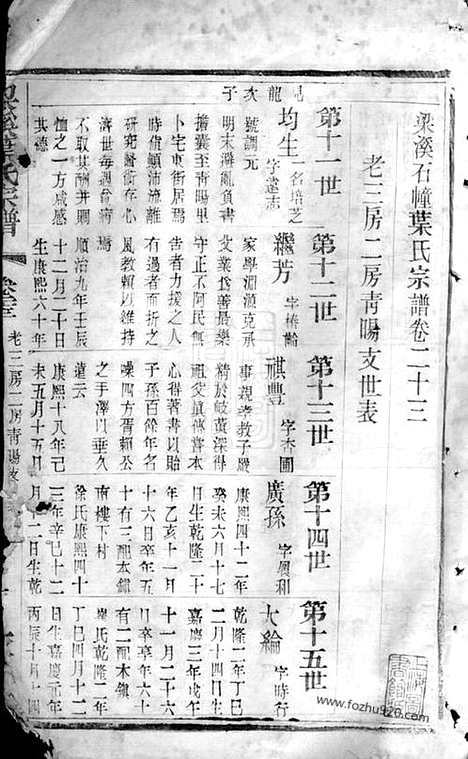 梁溪石幢葉氏宗譜卷二十三
老三房二房青暘支世表
第十一世
第十二世
第十三世
第十四世
第十五世
龍次子
均生
一名培芝
字蘧志
號調元
明末避亂負書
擔囊至青暘里
卜宅東街居焉
時値顚沛流離
研究醫術存心
濟世每當病瘍
不取其酬幷賙
恤之一方咸感
其德
繼芳
字椿齡
家學淵源克承
父業伎善最樂
守正不阿民無
告者力援之人
有過者面折之
風教賴以維持
順治九年壬辰
十二月二十日
生康熙六十年
祺豐
字杏圃
事親孝教子嚴
精於岐黃深得
祖父眞傳嘗本
心得著書以貽
子孫百餘年名
噪四方胥賴公
之手澤以垂久
遠云
康熙十八年己
未五月十五日
廣孫
字興和
康熙四十二年
癸未六月十七
日生乾隆二十
年乙亥十一月
十六日卒年五
十有三配本鎮
南樓下村
徐氏康熙四十
三年辛巳十二
月二日生乾
大綸
字時行
乾隆二年丁巳
二月十四日生
嘉慶三年戊午
十一月二十
日卒享年六十
有二配本鎮
龐氏乾隆二年
丁巳四月十二
日生嘉慶元年
丙辰十月十四
氏宗譜
老三房二房青暘支
www.fozhu920.com